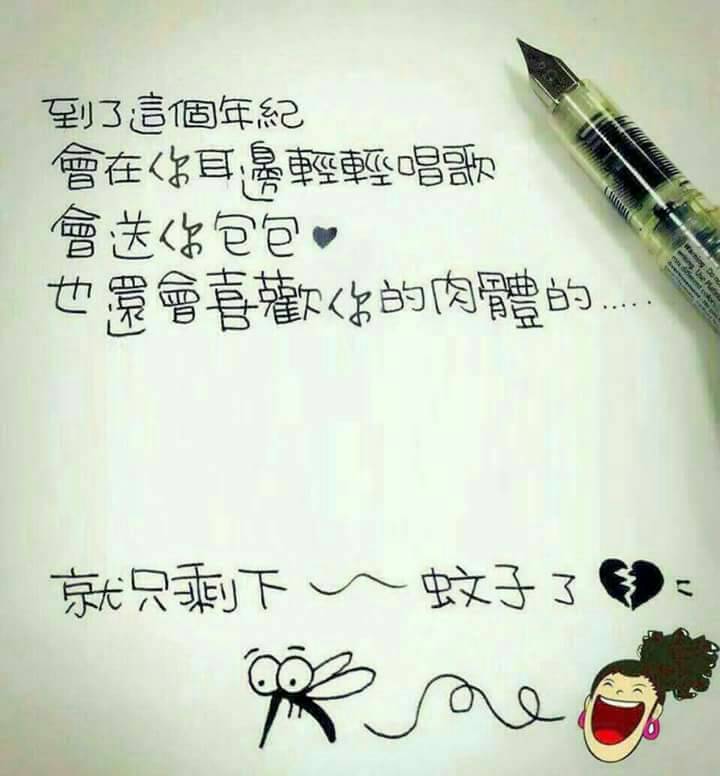 到了這個年紀
會在你耳邊輕輕唱歌
會送你包包♥
也還會喜歡你的肉體的.....
就只剩下～蚊子了💔=